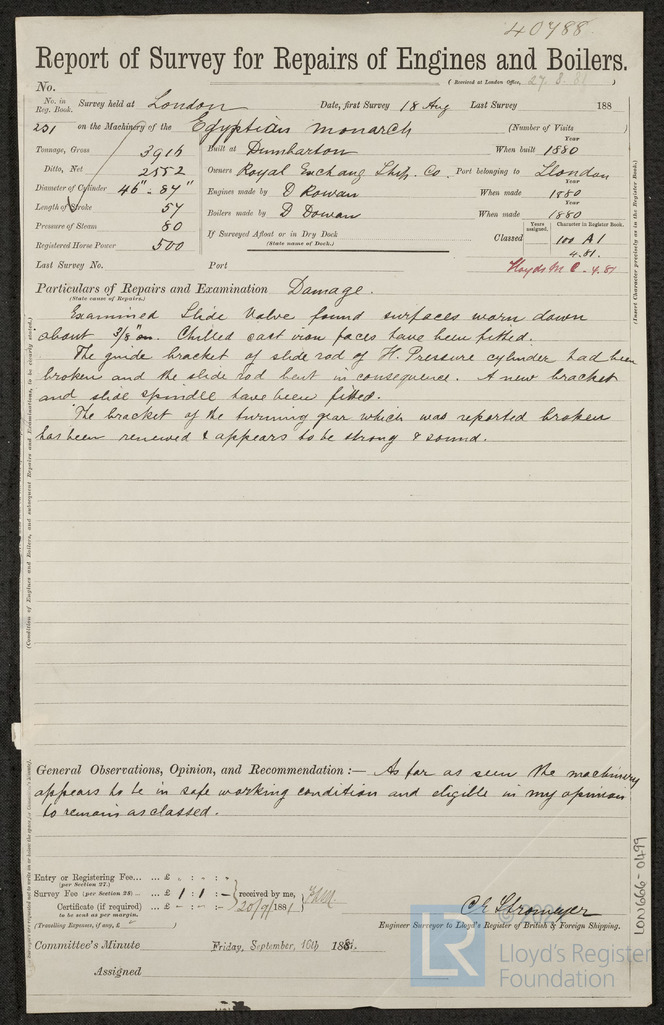 40788
Report of Survey for Repairs of Engines and Boilers.
No. (Received at London Office, 27. 8. 81 )
No. in Reg. Book. Survey held at London Date, first Survey 18 Aug Last Survey 188
231 on the Machinery of the Egyptian Monarch (Number of Visits )
Tonnage, Gross 3916 Built at Dumbarton When built Year 1880
Ditto, Net 2552 Owners Royal Exchang Ship. Co. Port belonging to London
Diameter of Cylinder 46" - 84" Engines made by D Rowan When made Year 1880
Length of Stroke 54 Boilers made by D Dowan When made Year 1880
Pressure of Steam 80 If Surveyed Afloat or in Dry Dock (State name of Dock.) Classed Years assigned. Character in Register Book. 100 A1 4.81.
Registered Horse Power 500
Last Survey No. Port Lloyds M C - 4.81
Particulars of Repairs and Examination Damage.
(State cause of Repairs.)
Examined Slide Valve found surfaces worn down
about 3/8" Chilled cast iron faces have been fitted.
The guide bracket of slide rod of H. Pressure cylinder had been
broken and the slide rod bent in consequence. A new bracket
and slide spindle have been fitted.
The bracket of the turning gear which was reported broken
has been renewed & appears to be strong & sound.
(Insert Character precisely as in the Register Book.)
(Condition of Engines and Boilers, and subsequent Repairs and Examinations, to be clearly stated.)
General Observations, Opinion, and Recommendation :— As far as seen the machinery
appears to be in safe working condition and eligible in my opinion
to remain as classed.
Entry or Registering Fee... ... £ . : - : -
(per Section 27.)
Survey Fee (per Section 28) ... ... £ 1 : 1 : - received by me,
Certificate (if required) ... £ - : - : - 20/9/1881
to be sent as per margin.
(Travelling Expenses, if any, £ )
C E Stromeyer
Engineer Surveyor to Lloyd's Register of British & Foreign Shipping.
Committee's Minute Friday, September, 16th 1881.
Assigned
LON666-0499
LR
Lloyd's Register
Foundation